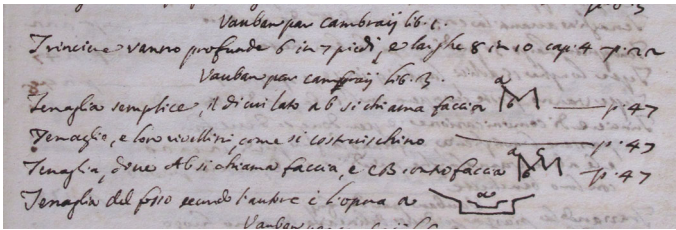 Vauban par Cambraij lib. 1.
Trincive vanno profunde 6 in 7 piedi, e larghe 8 in 10 cap. 4 p. 22
Vauban par Cambraij lib. 3.
Tenaglia semplice, il di cui lato ab si chiama faccia a b p. 47
Temaglie, e loro rivellini, come si costruischino p. 47
Tenaglia, dove AB si chiama faccia, e CB contofaccia a C b p. 47
Tenaglia del fosso secondo l'autore è l'opera a a
Vauban par